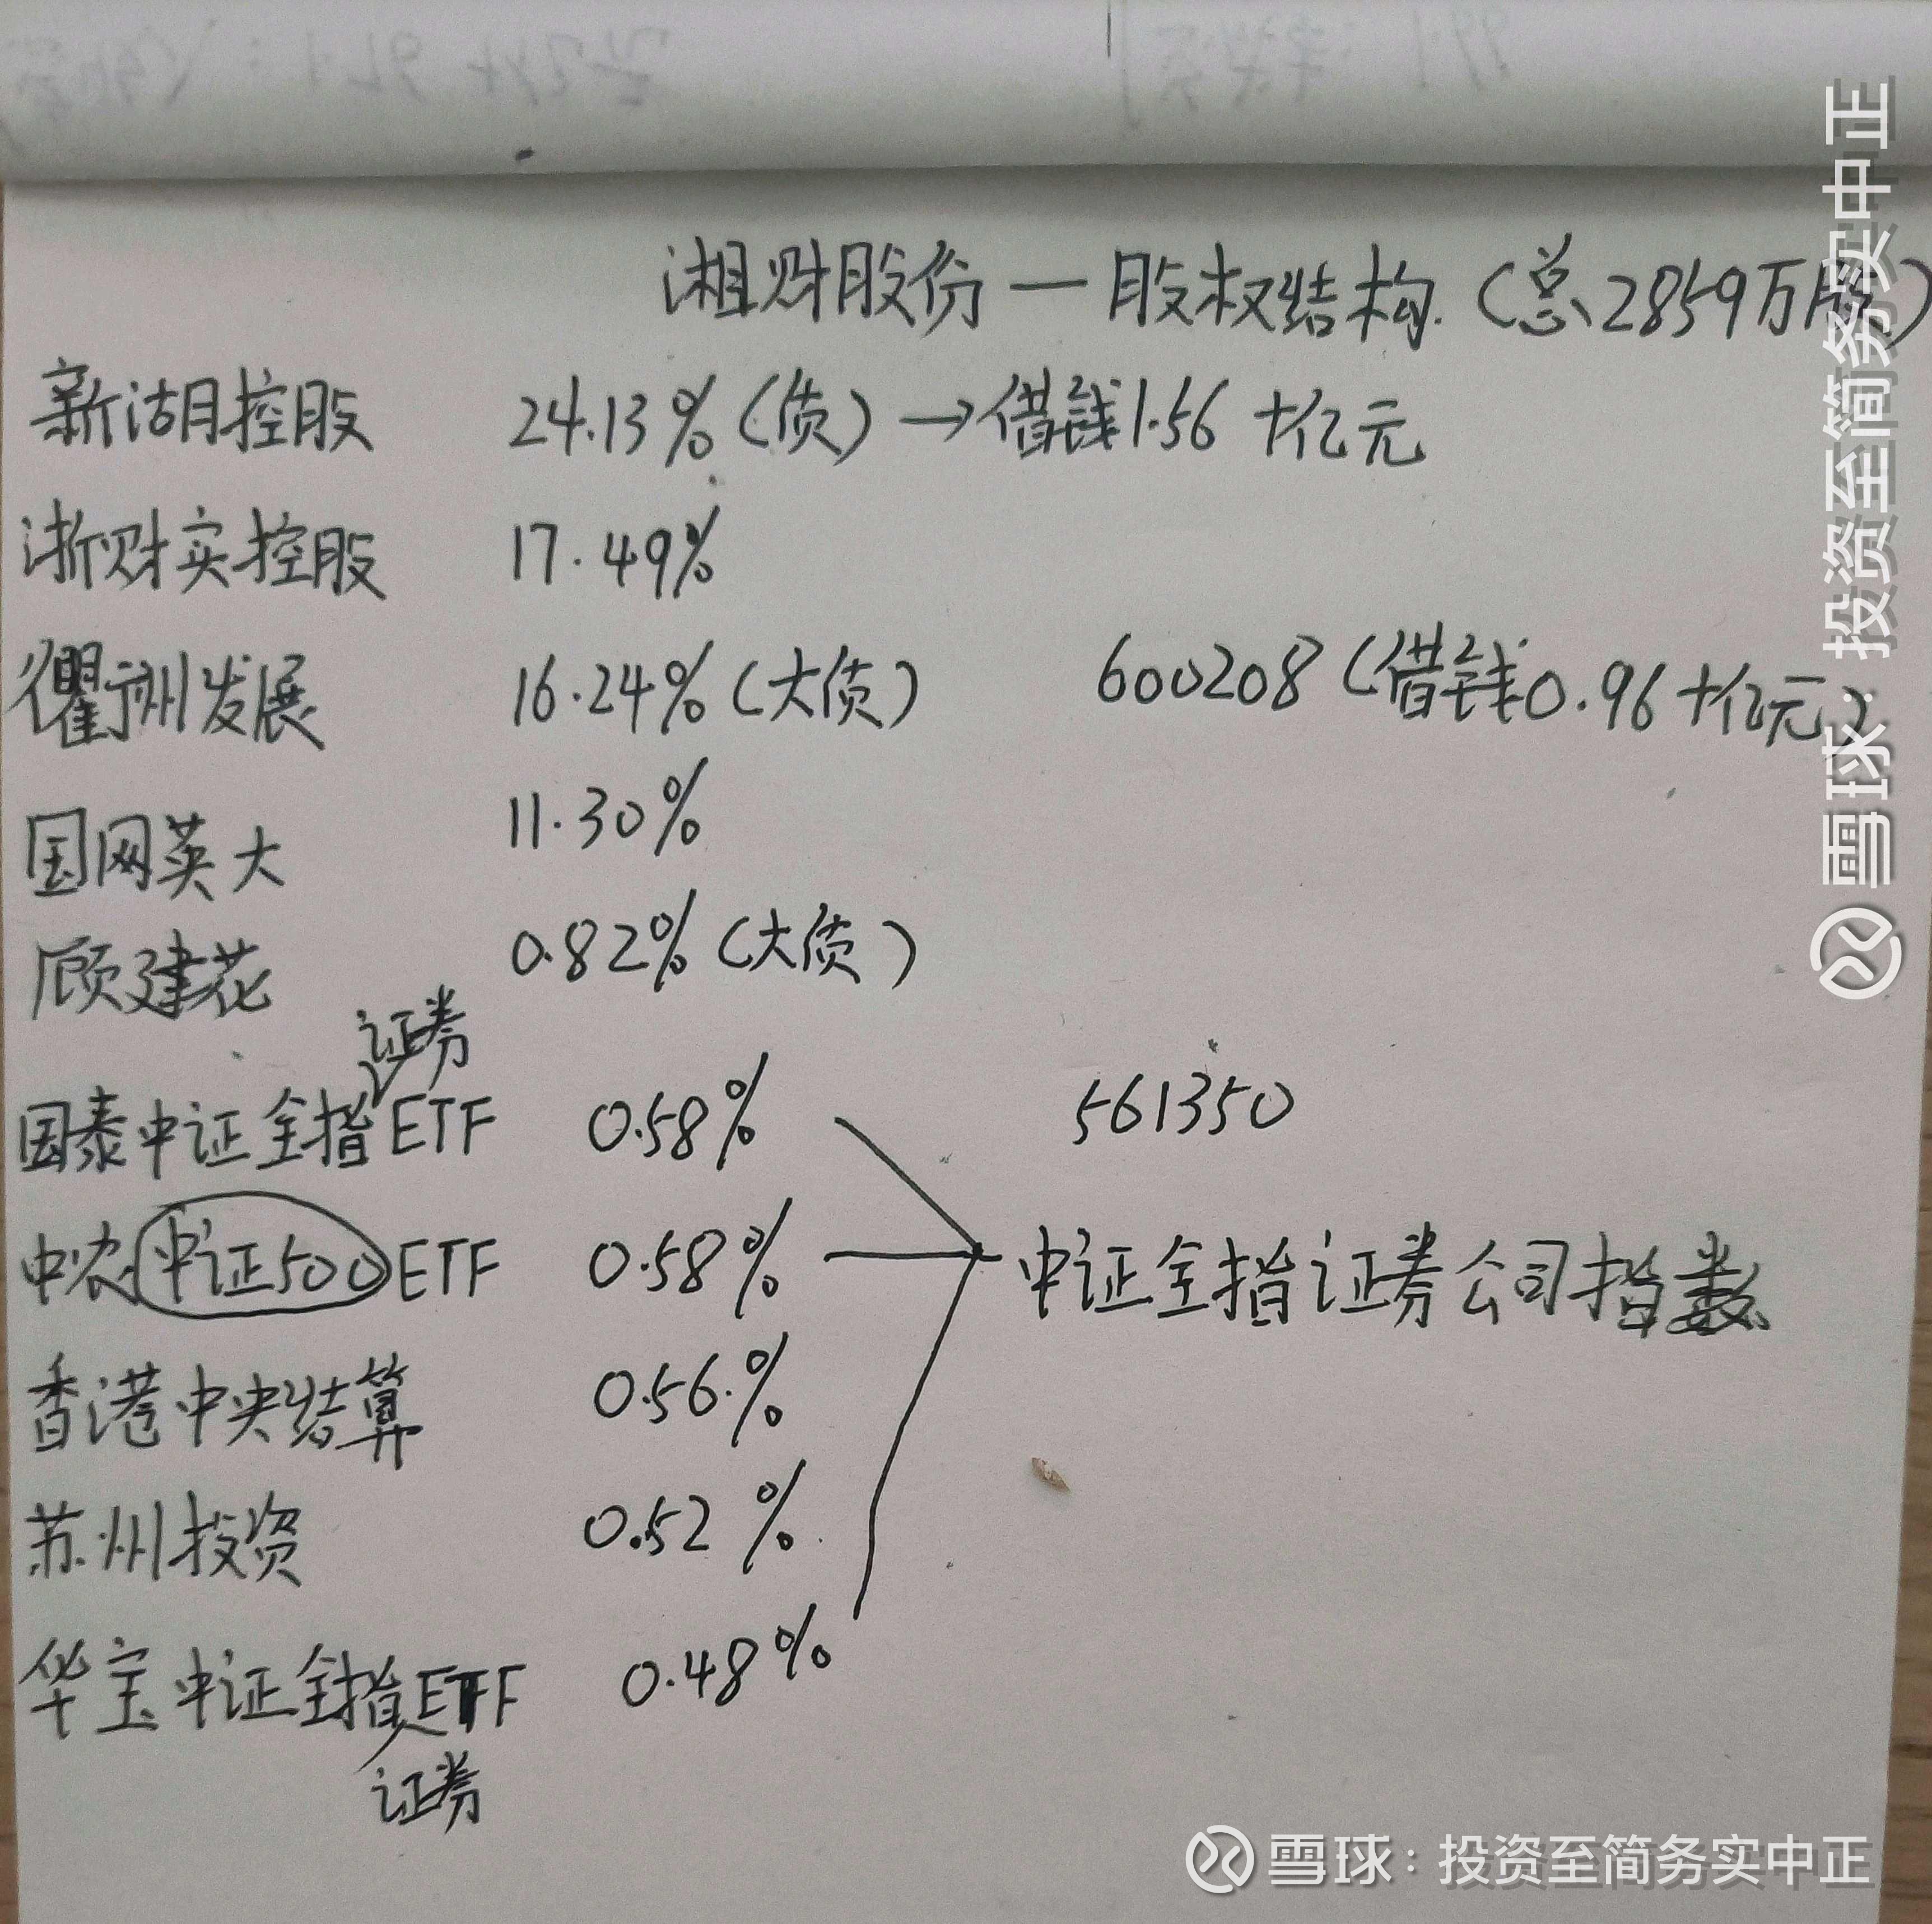 湘财股份一股权结构.(总2859万股)
新湖控股 24.13%(债)→借钱1.56十亿元
浙财实控股 17.49%
衢州发展 16.24%(大债) 600208(借钱0.96十亿元)
国网英大 11.30%
顾建花 0.82%(大债)
证券
国泰中证全指ETF 0.58% 561350
中农中证500ETF 0.58% 中证全指证券公司指数
香港中央结算 0.56%
苏州投资 0.52%
华宝中证全指ETF 0.48%
证券
雪球:投资至简务实中正
雪球:投资至简务实中正